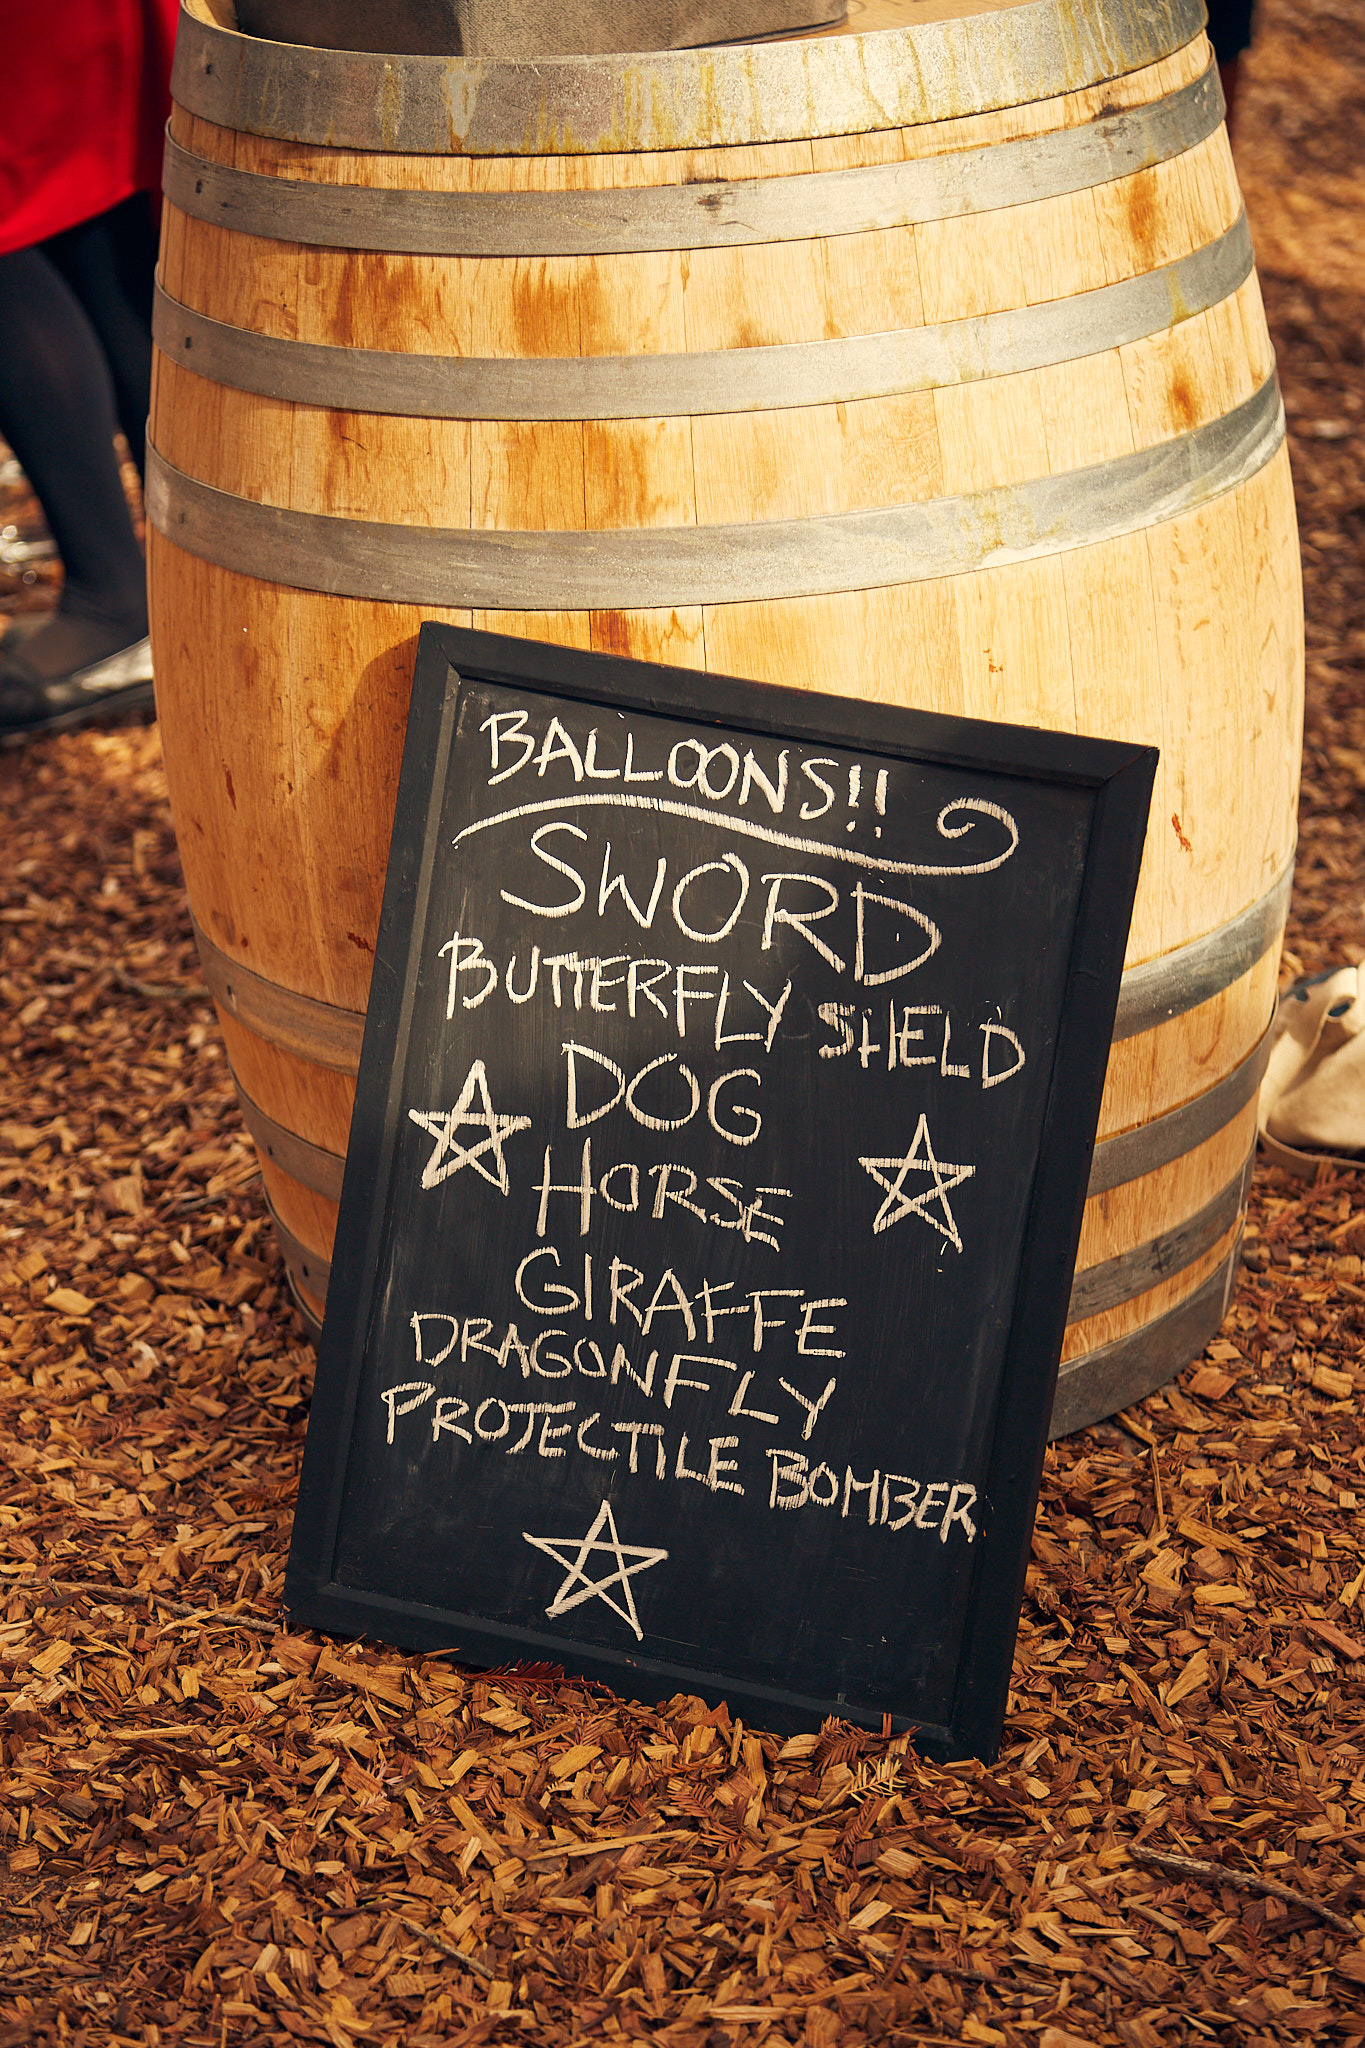 BALLOONS!!
SWORD
BUTTERFLY SHELD
DOG
HORSE
GIRAFFE
DRAGONFLY
PROJECTILE BOMBER